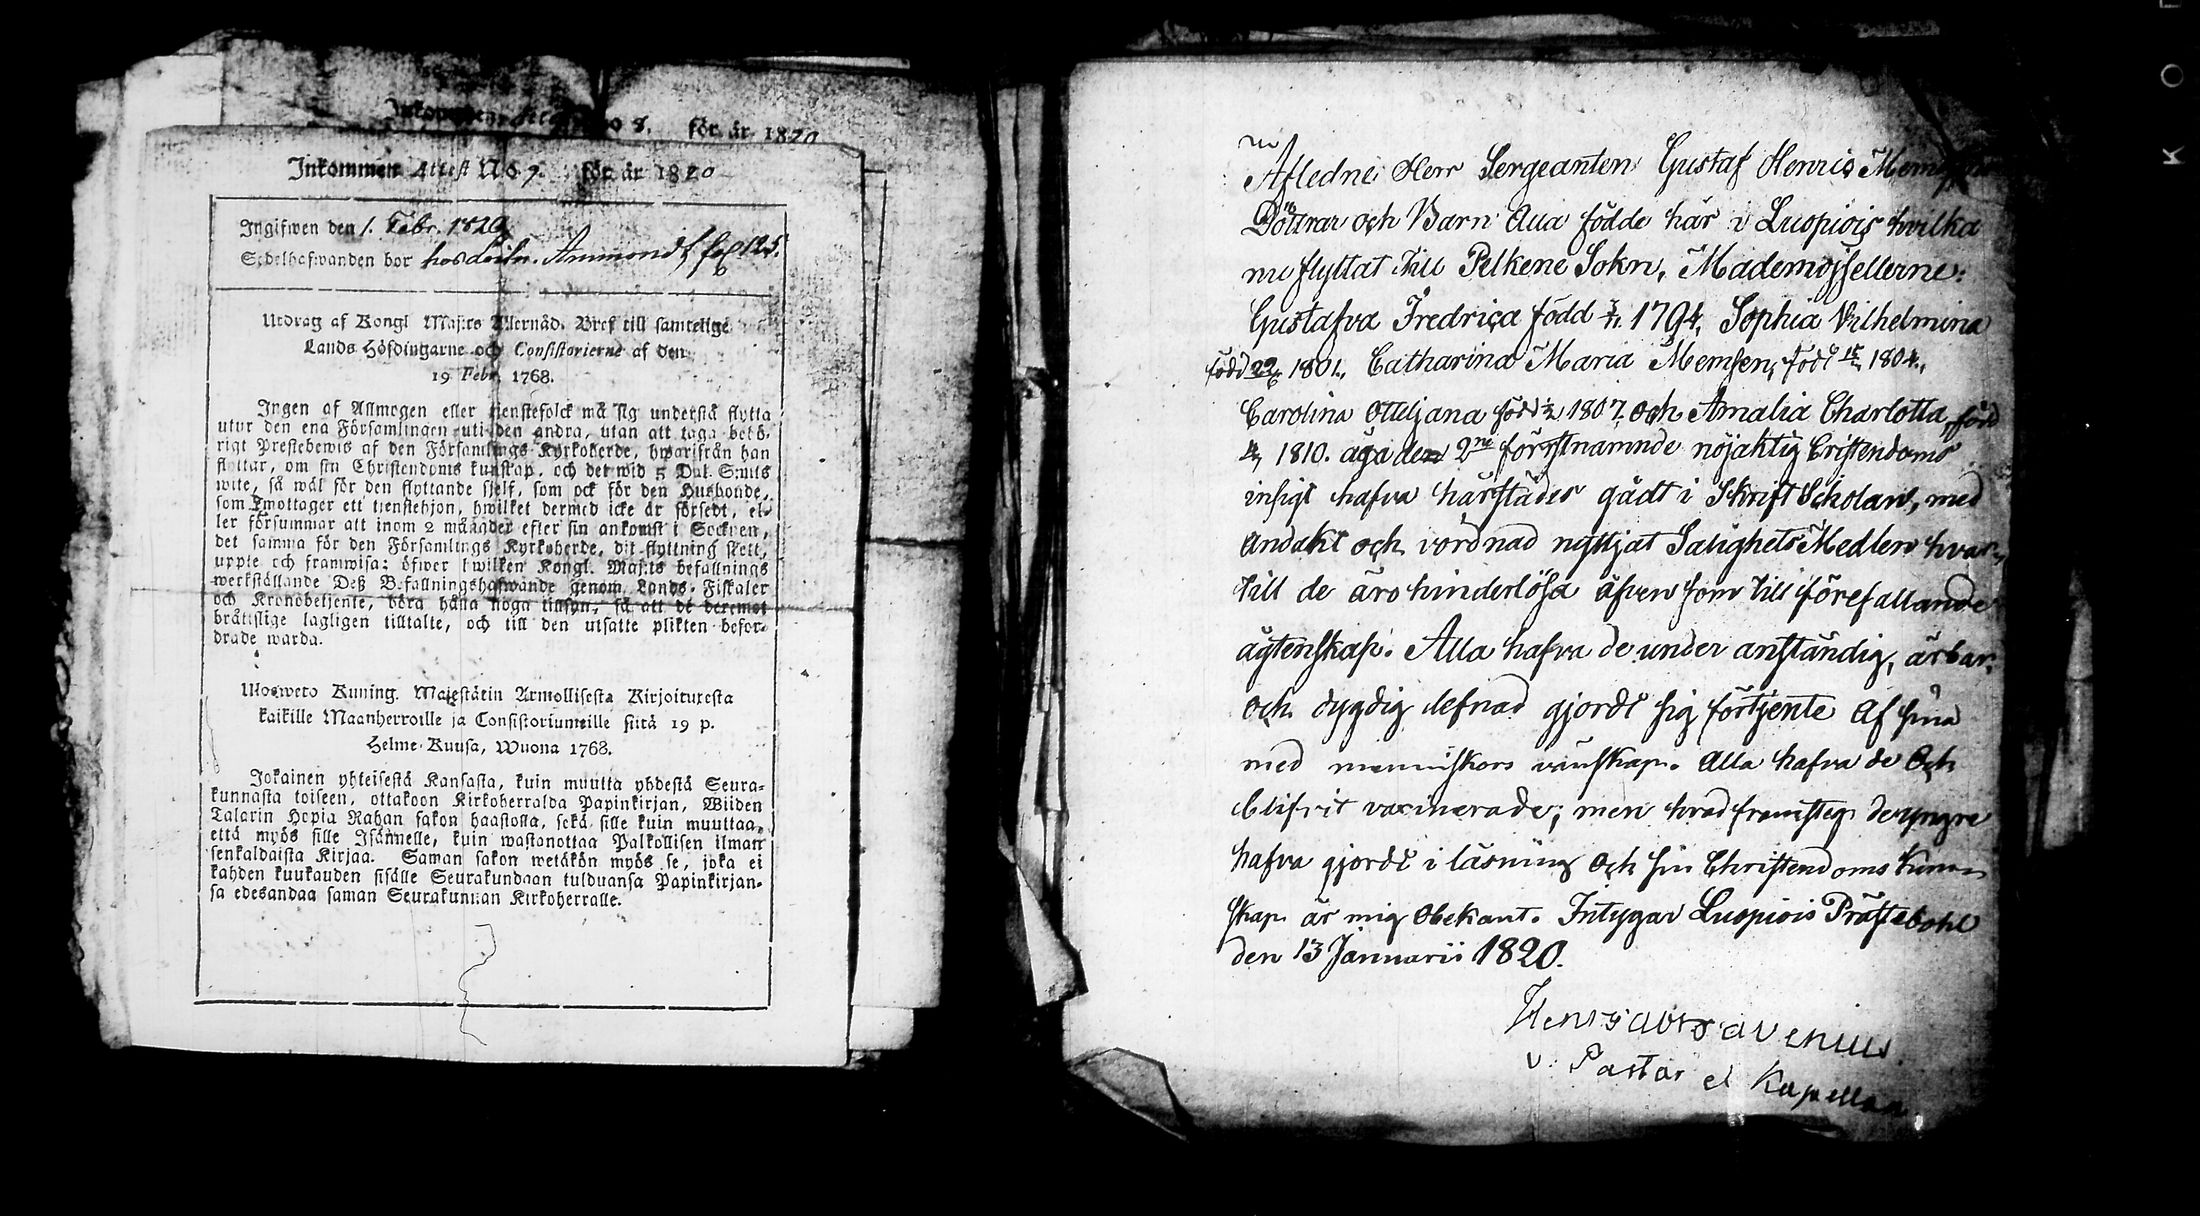 för år 1820
Inkommen Attest No 7. för år 1820
Ingifwen den 1. Febr. 1820
Sedelhafwanden bor hos Ammondt fol 125.
Utdrag af Kongl Maj:ts Allernåd. Bref till samtelige
Lands Höfdingarne och Consistorierne af den
19 Febr. 1768.
Ingen af Allmogen eller tjenstefolck må sig understå flytta
utur den ena Församlingen uti den andra, utan att taga behö-
rigt Prestebewis af den Församlings Kyrkoherde, hwarifrån han
flyttar, om sin Christendoms kunskap, och det wid 5 Dal. S:mts
wite, så wäl för den flyttande sjelf, som ock för den Husbonde,
som emottager ett tjenstehjon, hwilket dermed icke är försedt, el-
ler försummar att inom 2 månader efter sin ankomst i Socknen,
det samma för den Församlings Kyrkoherde, dit flyttning skett,
uppte och framwisa: öfwer hwilken Kongl. Maj:ts befallnings
werkställande Deß Befallningshafwande genom Lands-Fiskaler
och Kronobetjente, böra hålla noga tillsyn, så att de deremot
bråttslige lagligen tilltalte, och till den utsatte plikten befor-
drade warda.
Ulosweto Kuning. Majestätin Armollisesta Kirjoituxesta
kaikille Maanherroille ja Consistoriumeille siitä 19 p.
Helme-Kuusa, Wuona 1768.
Jokainen yhteisestä Kansasta, kuin muutta yhdestä Seura-
kunnasta toiseen, ottakoon Kirkoherralda Papinkirjan, Wiiden
Talarin Hopia Rahan sakon haastolla, sekä sille kuin muuttaa,
että myös sille Isännelle, kuin wastanottaa Palkollisen ilman
senkaldaista Kirjaa. Saman sakon wetäkön myös se, joka ei
kahden kuukauden sisälle Seurakundaan tulduansa Papinkirjan-
sa edesandaa saman Seurakunnan Kirkoherralle.
Afledne Herr Sergeanten Gustaf Henric
Döttrar och Barn Alla födde här i Luopiois hvilka
nu flyttat till Pelkene Sokn, Mademoisellerne:
Gustafva Fredrica född 1794, Sophia Vilhelmina
född 22/6 1801., Catharina Maria Memsen, född 1804.,
Carolina Ottiljana född 1807. och Amalia Charlotta, född
1810. äga de 2ne förstnamnde nöjaktig Cristendoms
insigt hafva härstädes gådt i SkriftScholan, med
andakt och vördnad nyttjat SalighetsMedlen hvar-
till de äro hinderlösa äfven som till förefallande
ägtenskap. Alla hafva de under anständig, ärbar
och dygdig lefnad gjordt sig förtjente af sina
med menniskors vänskap. Alla hafva de Och
blifvit vaxinerade; men hvad framsteg de yngre
hafva gjordt i läsning Och sin Christendoms kun-
skap är mig Obekant. Intygar Luopiois Prästebohl
den 13 Januarii 1820.
v. Pastor et Kapellan
K O